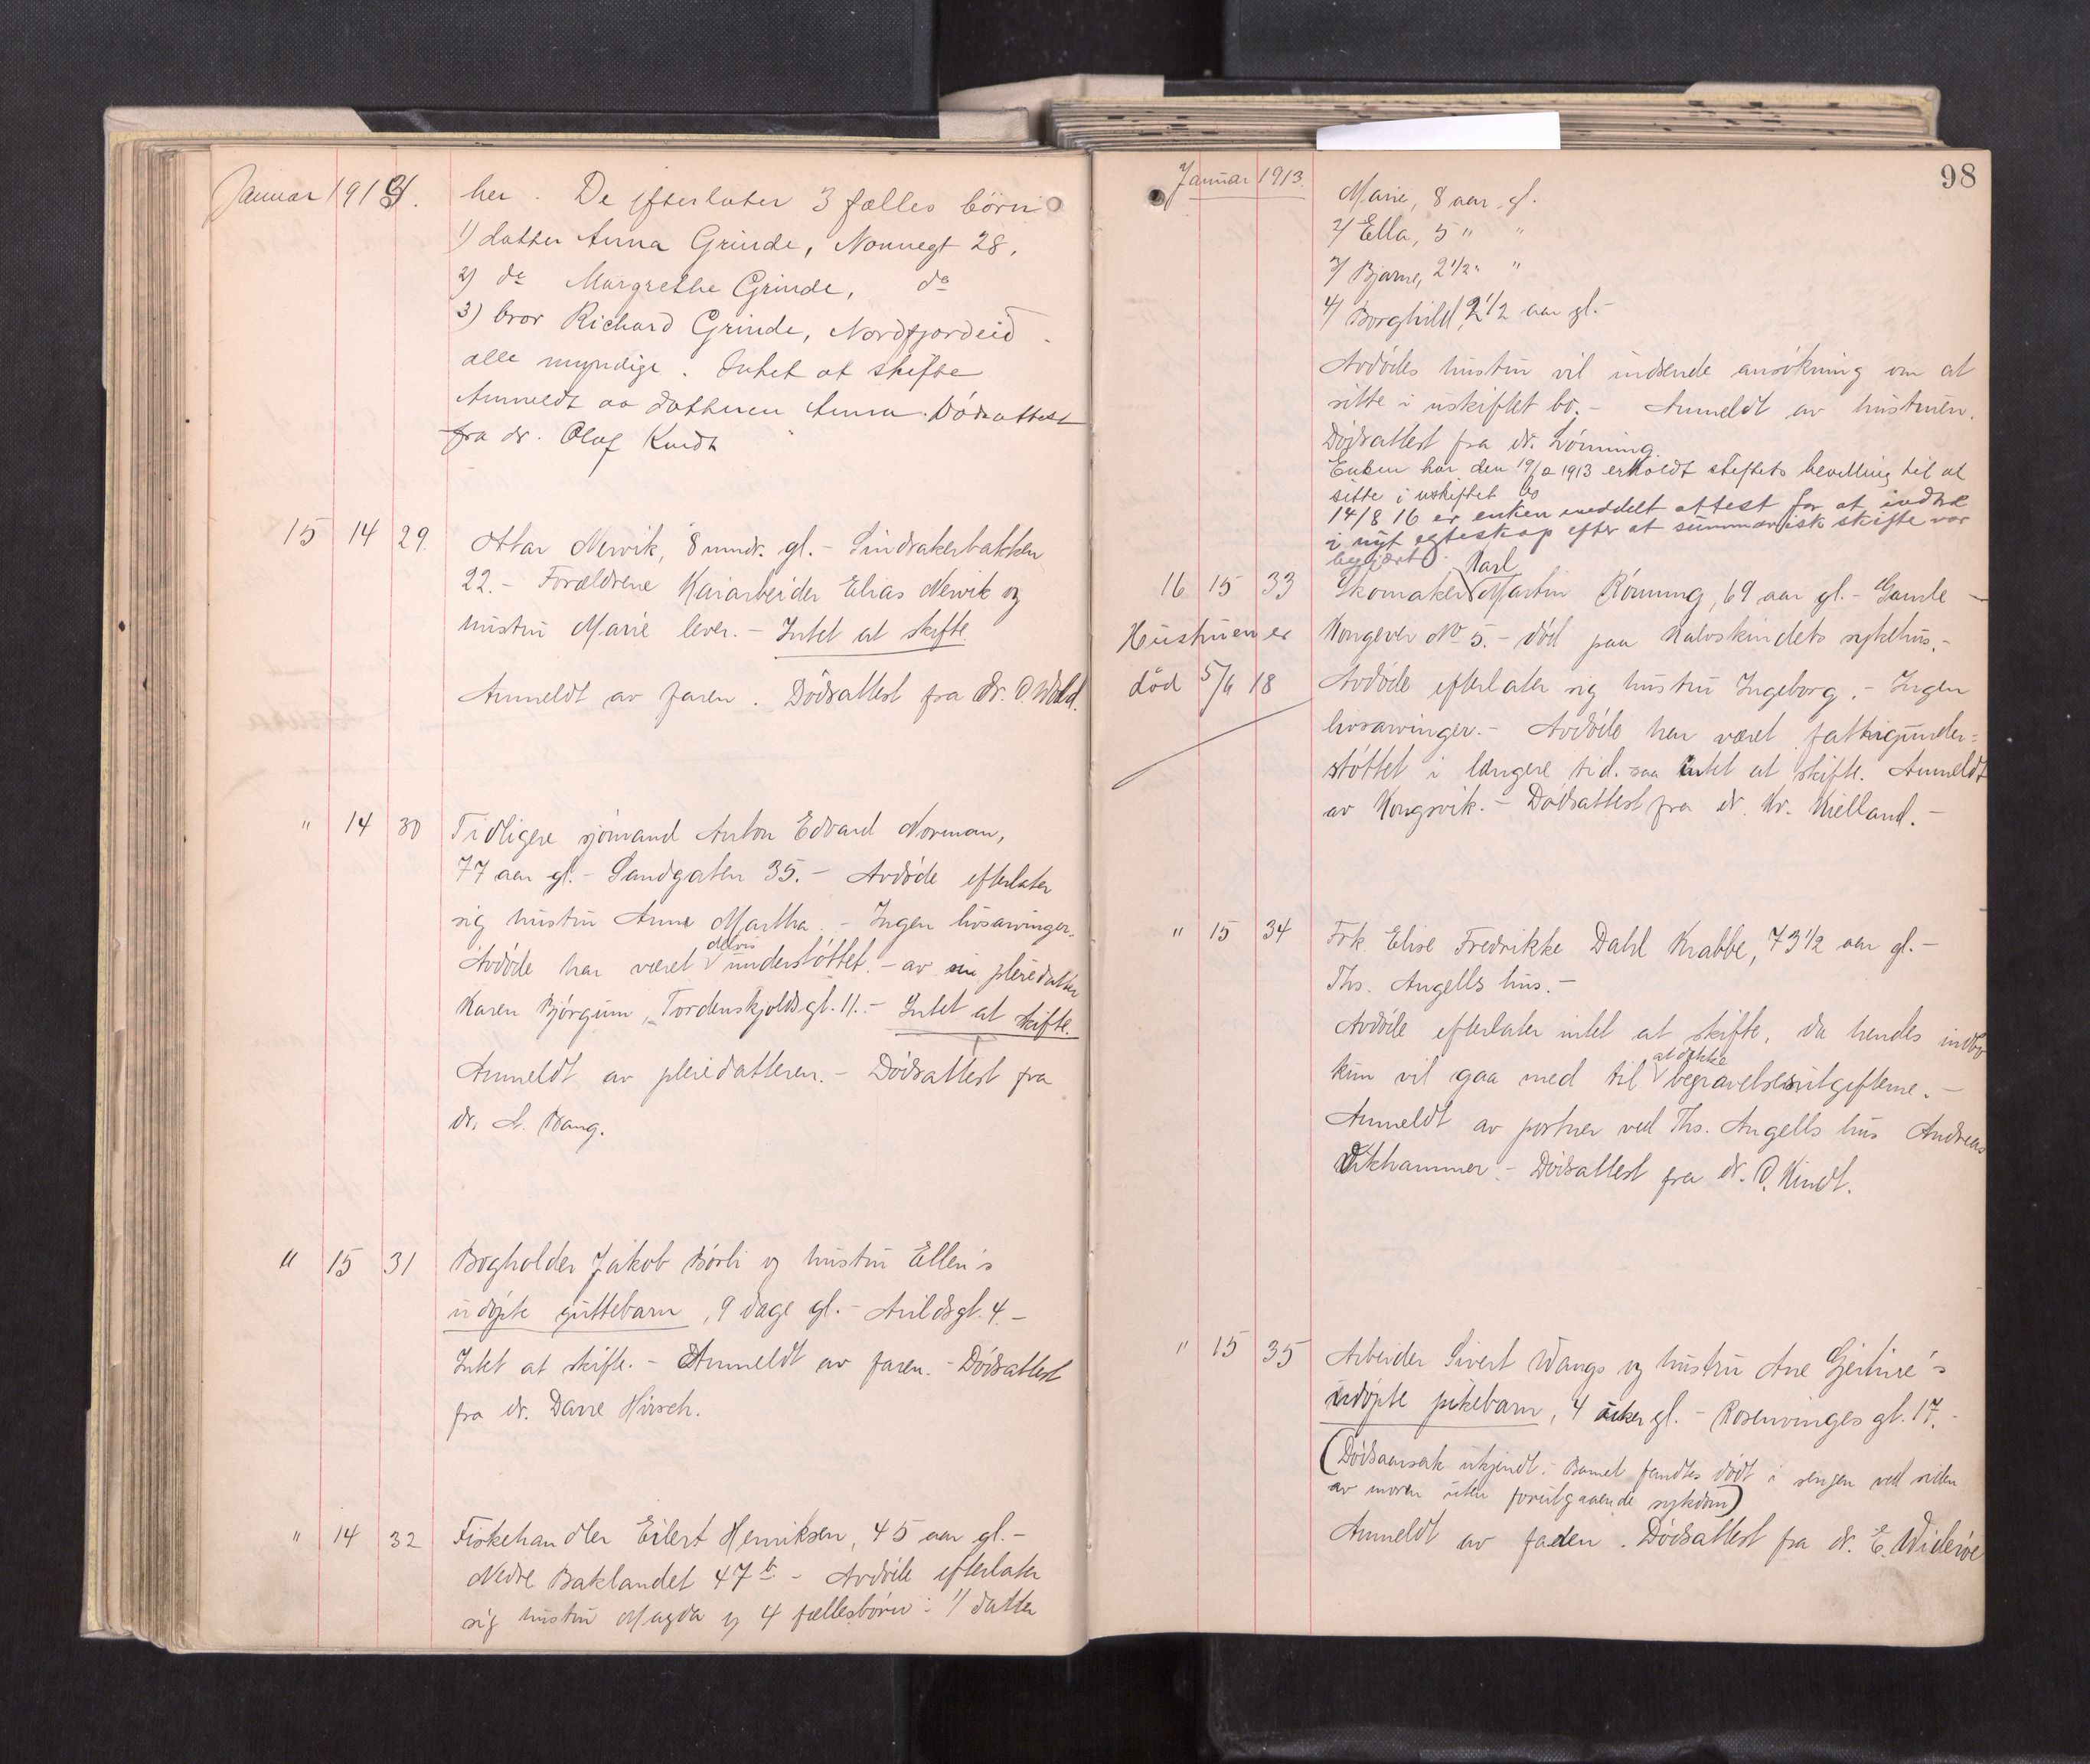 Januar 1913.
her. De efterlater 3 fælles børn
1) datter Anna Grinde, Nonnegt 28,
2) do Margrethe Grinde, do
3) bror Richard Grinde, Nordfjordeid
alle myndige. Intet at skifte
Anmeldt av datteren Anna. Dödsattest
fra dr. Olaf Kindt
15 14 29. Ottar Nervik, 8 mndr. gl. - Sindsakerbakken
22. - Forældrene Kaiarbeider Elias Nervik og
hustru Marie lever. - Intet at skifte.
Anmeldt av faren. Dödsattest fra Dr. O. Wold.
" 14 30 Tidligere sjömand Anton Edvard Norman,
77 aar gl. - Sandgaten 35. - Avdöde efterlater
sig hustru Anne Martha. - Ingen livsarvinger.
delvis
Avdöde har været understöttet. - av sin pleiedatter
Karen Bjørgum, Tordenskjoldsgt. 11. - Intet at skifte.
Anmeldt av pleiedatteren. - Dödsattest fra
dr. A. Bang.
" 15 31 Bogholder Jakob Børli og hustru Ellen's
udøpte guttebarn, 9 dage gl. - Arildsgt. 4. -
Intet at skifte. - Anmeldt av faren. - Dödsattest
fra dr. Darre Hirsch.
" 14 32 Fiskehandler Eilert Henriksen, 45 aar gl. -
Nedre Baklandet 47 b - Avdöde efterlater
sig hustru Magda og 4 fællesbörn: 1/ datter
98
Januar 1913.
Marie, 8 aar gl.
2/ Ella, 5 " "
3/ Bjarne, 2 1/2 " "
4/ Borghild, 2 1/2 aar gl. -
Avdödes hustru vil indsende ansökning om at
sitte i uskiftet bo. - Anmeldt av hustruen.
Dödsattest fra dr. Lönning.
Enken har den 19/2 1913 erholdt skiftets bevilling til at
sitte i uskiftet bo
14/8 16 er enken meddelt attest for at indtræ
i nyt egteskap efter at summarisk skifte var
begjært.
Karl
16 15 33 Skomaker Martin Rönning, 69 aar gl. - Gamle
Hustruen er Kongevei No 5. - död paa Kalvskindets sykehus. -
død 5/6 18 Avdöde efterlater sig hustru Ingeborg. - Ingen
livsarvinger. - Avdöde har været fattigunder=
støttet i længere tid. saa intet at skifte. Anmeldt
av Kongsvik. - Dødsattest fra dr. Kr. Kielland. -
" 15 34 Frk. Elise Fredrikke Dahl Krabbe, 73 1/2 aar gl. -
Ths. Angells hus. -
Avdöde efterlater intet at skifte, da hendes indbo
at dække
kun vil gaa med til begravelsesutgifterne. -
Anmeldt av portner ved Ths. Angells hus Andreas
Vikhammer. - Dødsattest fra dr. O. Kindt.
" 15 35 Arbeider Sivert Wangs og hustru Ane Gjertine's
udøpte pikebarn, 4 uker gl. - Rosenvinges gt. 17. -
(Dødsaarsak ukjendt. - Barnet fandtes dødt i sengen ved siden
av moren uten forutgaaende sykdom)
Anmeldt av faren. Dødsattest fra dr. E. Widerøe